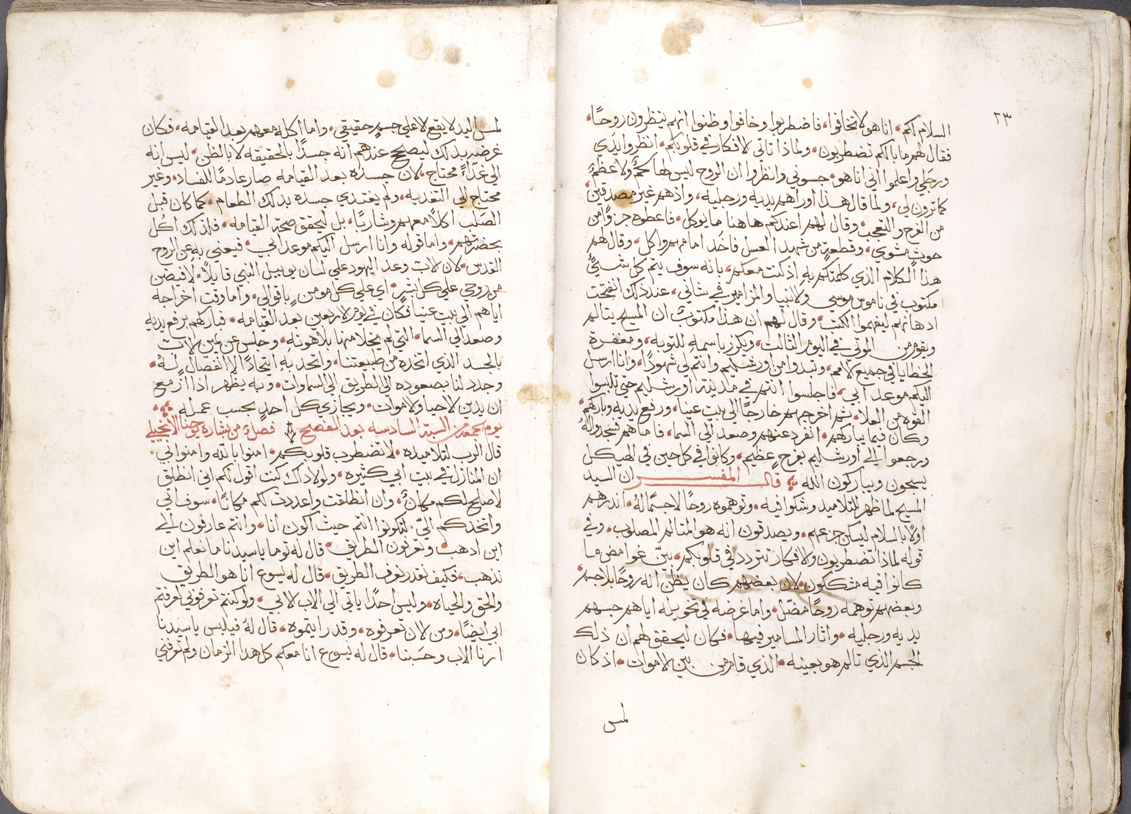 ٢٣
السلام لكم • انا هو لا تخافوا • فاضطربوا وخافوا وظنوا انهم ينظرون روحًا •
فقال لهم ما بالكم تضطربون • ولماذا تاتي لافكار في قلوبكم • انظروا يدي
ورجلي واعلموا اني انا هو • جسوني وانظروا ان الروح ليس لها لحمٌ ولا عظمٌ
كما ترون لي • ولما قال هذا اوراهم يديه ورجليه • واذ هم غير مصدقين
من الفرح والتعجب • وقال لهم اعندكم هاهنا ما يوكل • فاعطوه جزوًا من
حوت مشوي • وقطعة من شهد العسل فاخذ امامهم واكل • وقال لهم
هذا الكلام الذي كلمتكم به اذ كنت معكم • بانه سوف يتم كل شيءٍ
مكتوب في ناموس موسى ولانبيا والمزامير من شاني • عند ذلك انفتحت
اذهانهم ليفهموا الكتب • وقال لهم ان هذا مكتوبٌ ان المسيح يتالم
ويقوم من الموتى في اليوم الثالث • ويكرز باسمه للتوبه • ومغفرة
الخطايا في جميع لامم • وتبدوا من اورشليم وانتم لي شهودًا • وانا ارسل
اليكم موعد ابي • فاجلسوا انتم في مدينة اورشليم حتى تلبسوا
القوه من العلا • ثم اخرجهم خارجًا الى بيت عنيا • ورفع يديه وباركهم •
وكان فيما يباركهم • انفرد عنهم وصعد الى السما • فاما هم سجدوا له
ورجعوا الى اورشليم بفرح عظيم • وكانوا في كل حين في الهيكل
يسبحون ويباركون الله قال المفسر ان السيد
المسيح لما ظهر للتلاميذ وشكوا فيه • وتوهموه روحًا لا جسمًا له • انذرهم
اولًا بالسلام ليسكن جزعهم • ويصدقون انه هو المتالم المصلوب • وفي
قوله لماذا تضطربون ولافكار تتردد في قلوبكم • بين غوامض ما
كانوا فيه مشككون • لان بعضهم كان يظن انه روحًا بلا جسم •
وبعضهم توهمه روحًا مضل • واما غرضه في تخويله اياهم جسهم
يديه ورجليه • واثار المسامير فيها • فكان ليحقق لهم ان ذلك
الجسم الذي تالم هو بعينه • الذي قام من بين لاموات • اذ كان
لمس
لمس اليد لا يقع لا على جسم حقيقي • واما اكله معهم بعد القيامه • فكان
غرضه بذلك ليصحح عندهم انه جسدًا بالحقيقه لا بالظن • ليس انه
الى غذاءً محتاج • لان جسده بعد القيامه صار عادمًا للفساد • وغير
محتاج الى التغذيه • ولم يغتذي جسده بذلك الطعام • كما كان قبل
الصلب اكلًا معهم وشاربًا • بل ليحقق صحة القيامه • فلذلك اكل
بحضرتهم • واما قوله وانا ارسل اليكم موعد ابي • فيعني به عن الروح
القدس • لان لاب وعد اليهود على لسان يوييل النبي قايلًا • لافيض
من روحي على كل بشر • اي على كل مومن باقوالي • واما وقت اخراجه
اياهم الى بيت عنيا • فكان في يوم لاربعين بعد القيامه • فباركهم برفع يديه
وصعد الى السما • التي لم يخلا منها بلاهوته • وجلس عن يمين لاب
بالجسد الذي اتخذه من طبيعتنا • واتحد به اتحادًا لا انفصال له •
وجدد لنا بصعوده الى الطريق الى السماوات • وبه يظهر اذا ازمع
ان يدين لاحيا ولاموات • ويجازي كل احدٍ بحسب عمله
يوم لسادسه بعد الفصح فصل من بشارة يوحنا لانجيلي
قال الرب لتلاميذه • لا تضطرب قلوبكم • امنوا بالله وامنوا بي
ان المنازل في بيت ابي كثيره • ولا ذلك كنت اقول لكم اني انطلق
لاصلح لكم مكانًا • وان انطلقت واعددت لكم مكانًا • سوف اتي
واتخذكم اليّ لتكونوا انتم حيث اكون انا • وانتم عارفون الى
اين اذهب • وتعرفون الطريق • قال له توما يا سيدنا ما نعلم اين
تذهب • فكيف نقدر نعرف الطريق • قال له يسوع انا هو الطريق
والحق والحياه • وليس احدًا ياتي الى الاب لا بي • ولو كنتم عرفتم
ابي ايضًا • ومن لان تعرفوه • وقد رايتموه • قال له فيلبس يا سيدنا
ارنا الاب وحسبنا • قال له يسوع انا معكم كل هذا الزمان ولم تعرفني